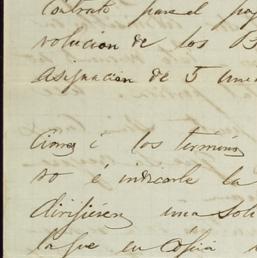 Contrato para el pa
volucion de los B
asignacion de 5
los terminos
so é indicarle la
dirijiesen una sol
la que en cópia